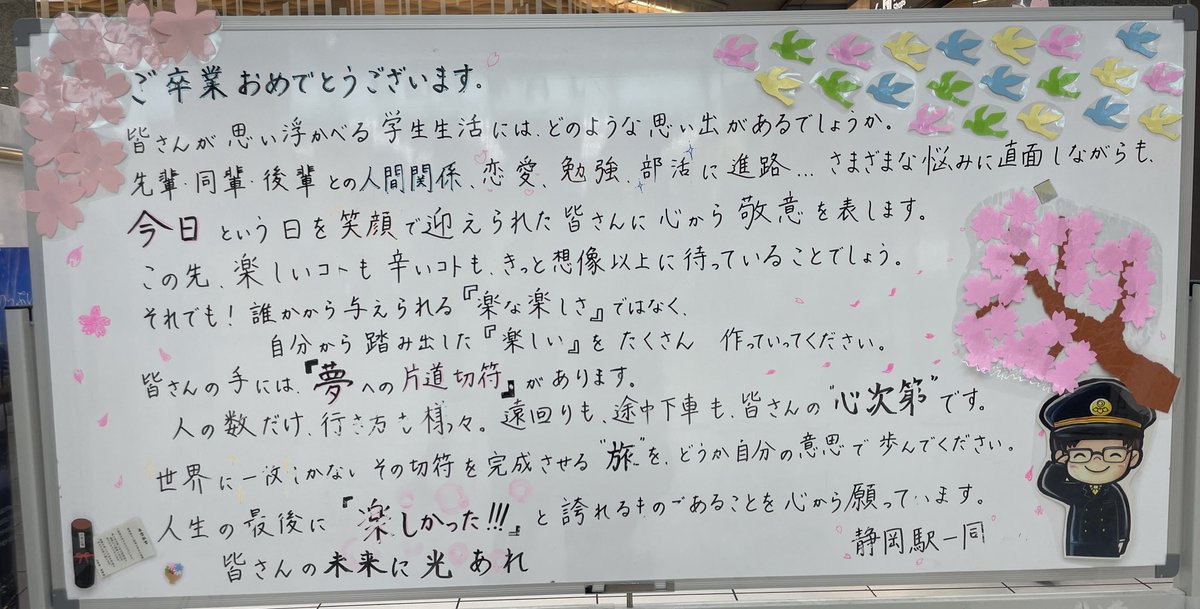 ご卒業おめでとうございます。
皆さんが思い浮かべる学生生活には、どのような思い出があるでしょうか。
先輩・同輩・後輩との人間関係、恋愛、勉強、部活に進路…さまざまな悩みに直面しながらも、
今日という日を笑顔で迎えられた皆さんに心から敬意を表します。
この先、楽しいコトも辛いコトも、きっと想像以上に待っていることでしょう。
それでも!誰かから与えられる『楽な楽しさ』ではなく、
自分から踏み出した『楽しい』をたくさん 作っていってください。
皆さんの手には、『夢への片道切符』があります。
人の数だけ、行き方も様々。遠回りも、途中下車も、皆さんの"心次第"です。
世界に一枚しかないその切符を完成させる"旅"を、どうか自分の意思で歩んでください。
人生の最後に『楽しかった!!!』と誇れるものであることを心から願っています。
皆さんの未来に光あれ
静岡駅一同